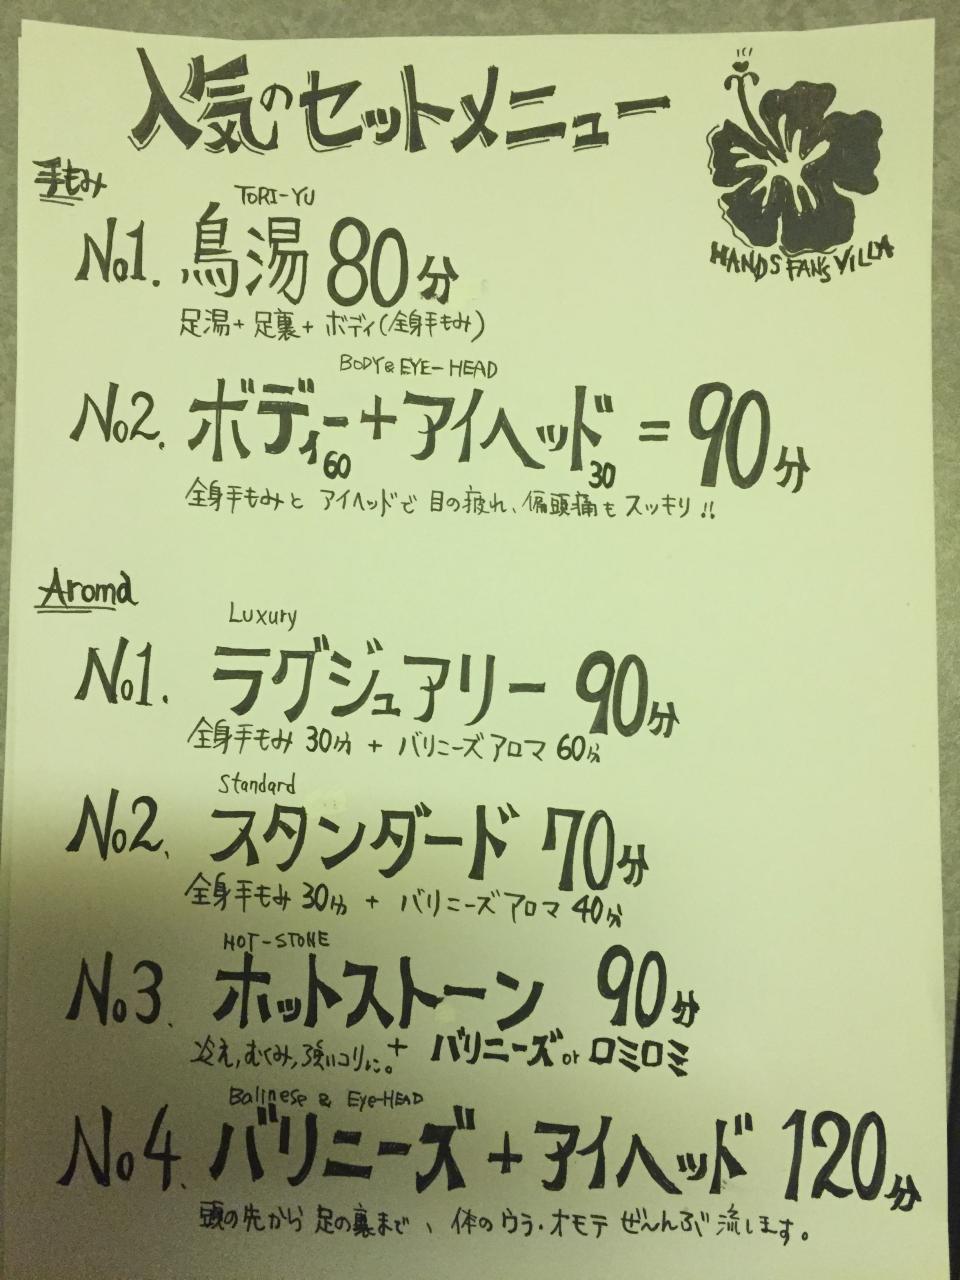 人気のセットメニュー
HANDS FANS VILLA
手もみ
TORI-YU
No1. 鳥湯 80分
足湯+足裏+ボディ(全身手もみ)
BODY & EYE-HEAD
No2. ボディー60+アイヘッド30=90分
全身手もみと アイヘッドで 目の疲れ、偏頭痛も スッキリ!!
Aroma
Luxury
No1. ラグジュアリー 90分
全身手もみ 30分 + バリニーズアロマ 60分
Standard
No2、 スタンダード 70分
全身手もみ 30分 + バリニーズアロマ 40分
HOT-STONE
No3、 ホットストーン 90分
冷え,むくみ,強いコリに。+ バリニーズ or ロミロミ
Balinese & Eye-HEAD
No4、 バリニーズ+アイヘッド 120分
頭の先から 足の裏まで、体のウラ・オモテ ぜーんぶ 流します。